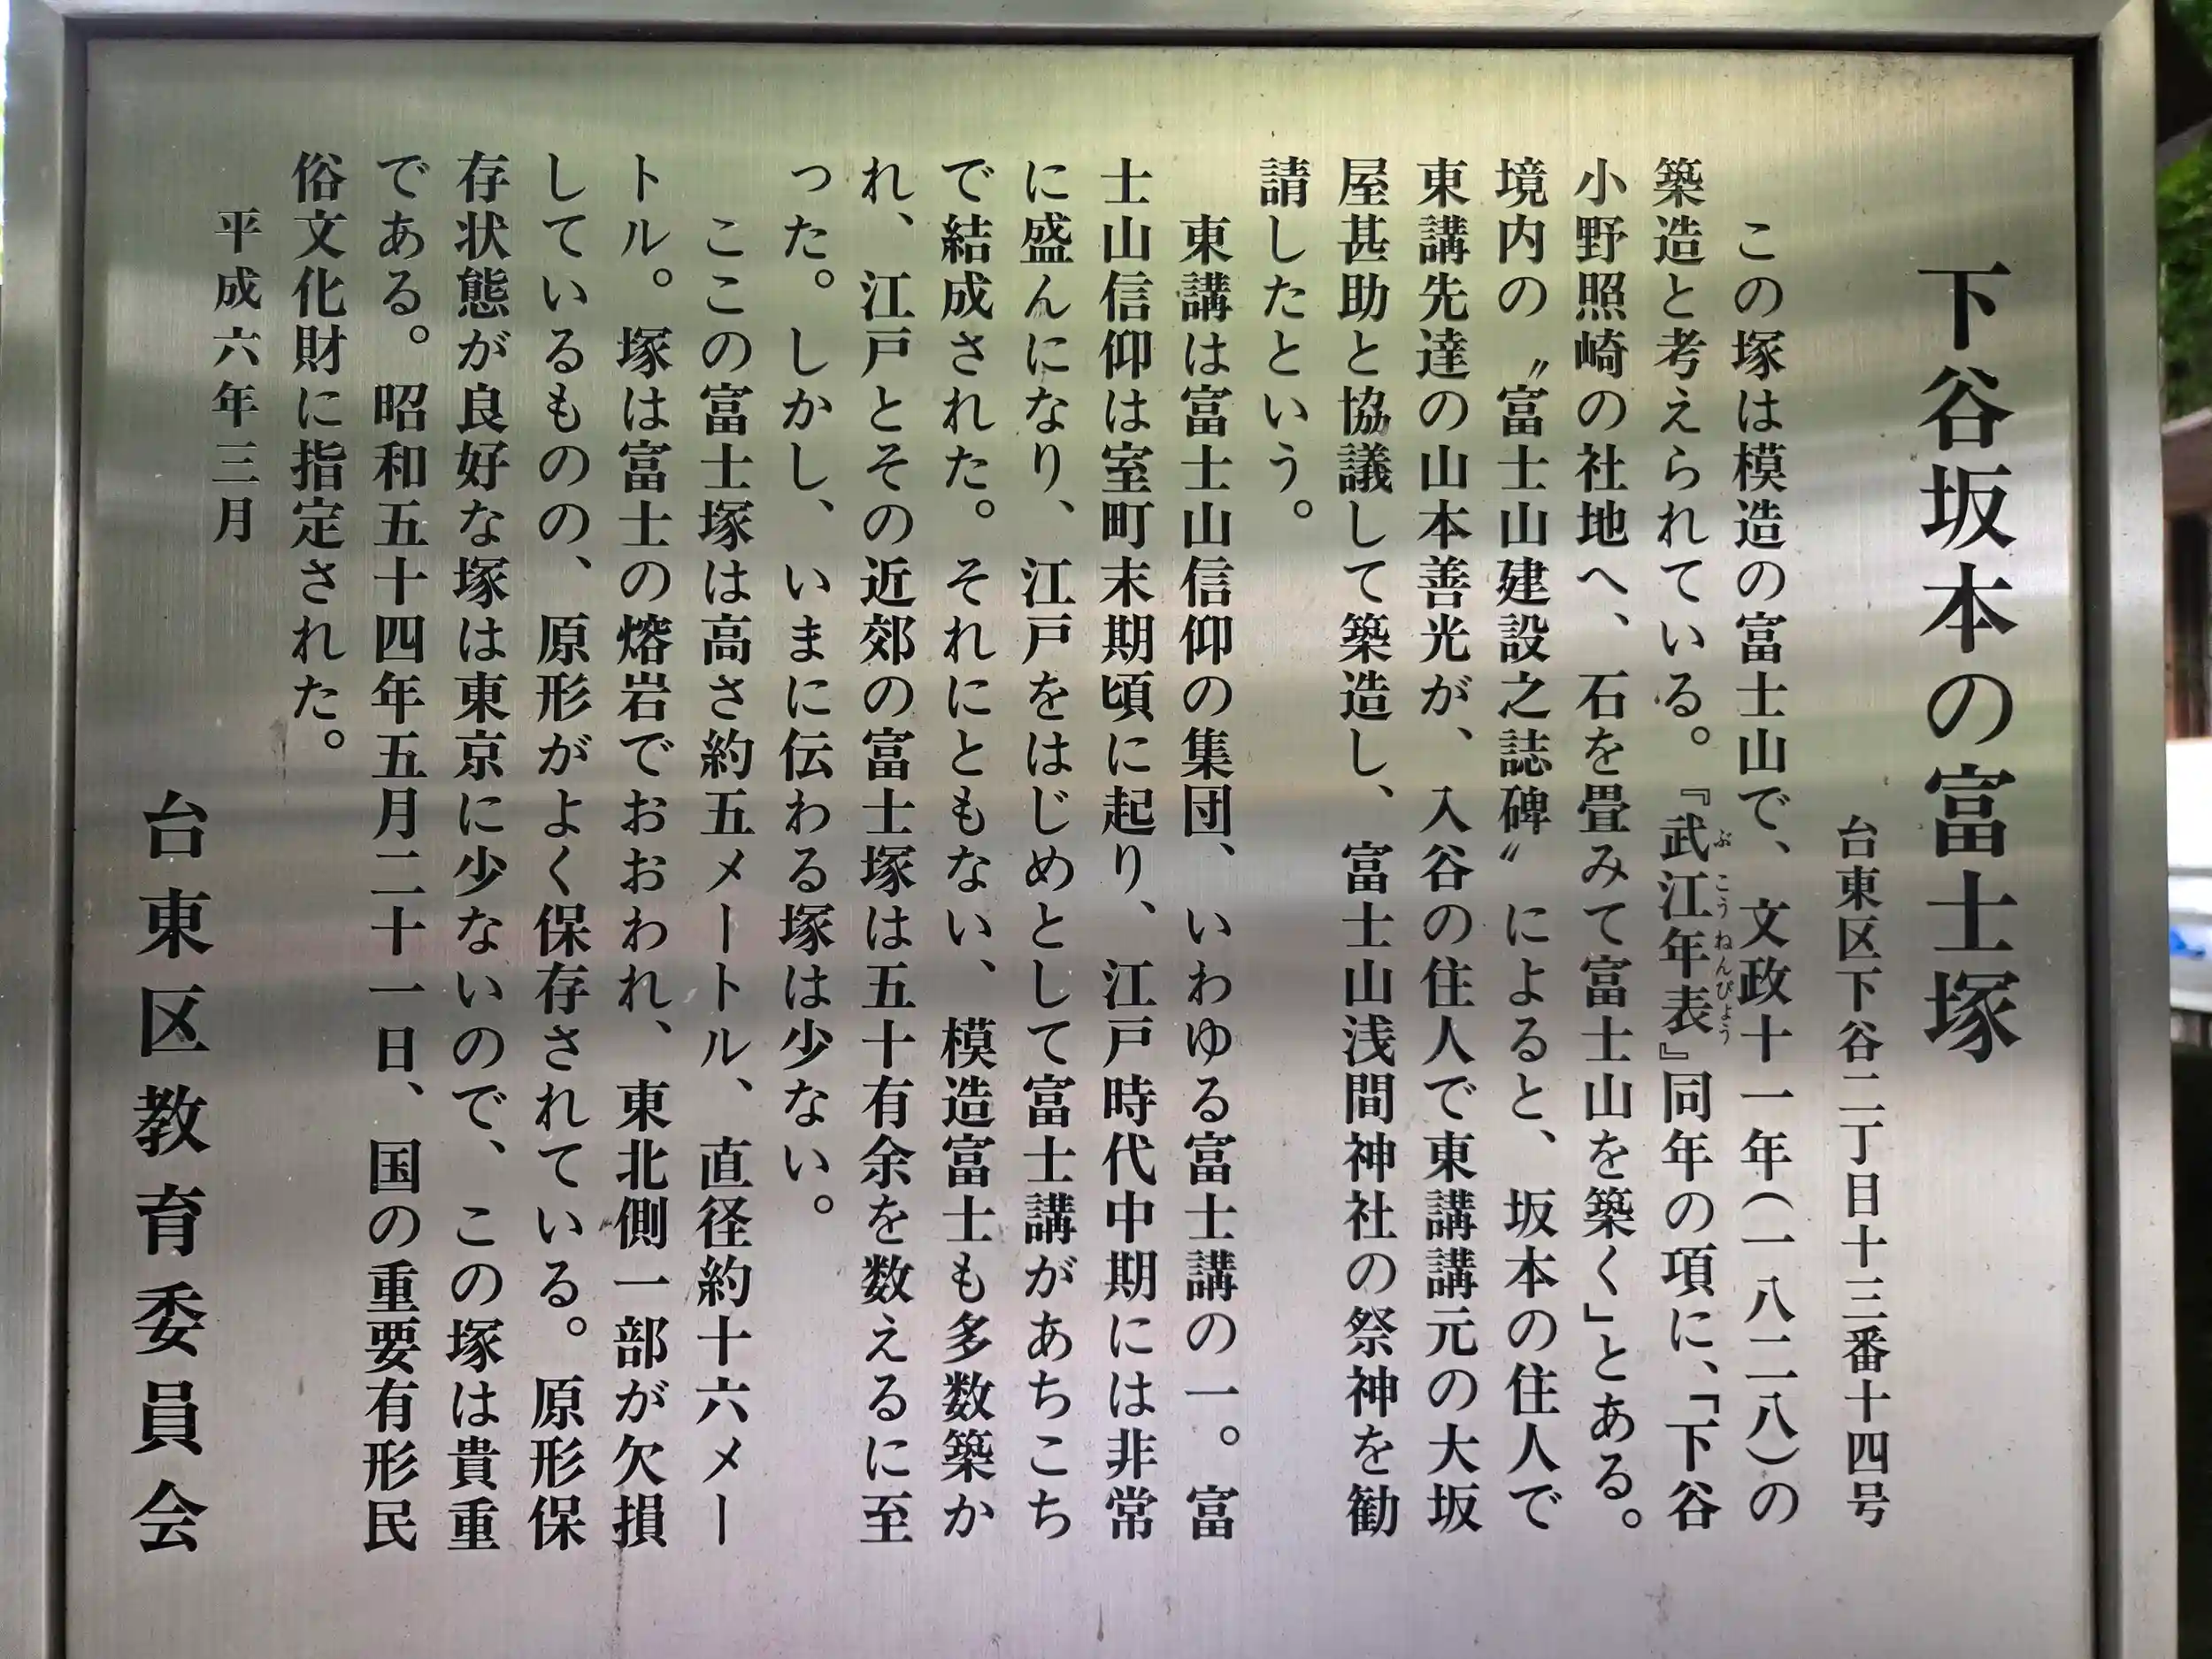 下谷坂本の富士塚
台東区下谷二丁目十三番十四号
この塚は模造の富士山で、文政十一年(一八二八)の
築造と考えられている。『武江年表』同年の項に、「下谷
ぶこうねんぴょう
小野照崎の社地へ、石を畳みて富士山を築く」とある。
境内の〝富士山建設之誌碑〟によると、坂本の住人で
東講先達の山本善光が、入谷の住人で東講講元の大坂
屋甚助と協議して築造し、富士山浅間神社の祭神を勧
請したという。
東講は富士山信仰の集団、いわゆる富士講の一。富
士山信仰は室町末期頃に起り、江戸時代中期には非常
に盛んになり、江戸をはじめとして富士講があちこち
で結成された。それにともない、模造富士も多数築か
れ、江戸とその近郊の富士塚は五十有余を数えるに至
った。しかし、いまに伝わる塚は少ない。
ここの富士塚は高さ約五メートル、直径約十六メー
トル。塚は富士の熔岩でおおわれ、東北側一部が欠損
しているものの、原形がよく保存されている。原形保
存状態が良好な塚は東京に少ないので、この塚は貴重
である。昭和五十四年五月二十一日、国の重要有形民
俗文化財に指定された。
平成六年三月
台東区教育委員会